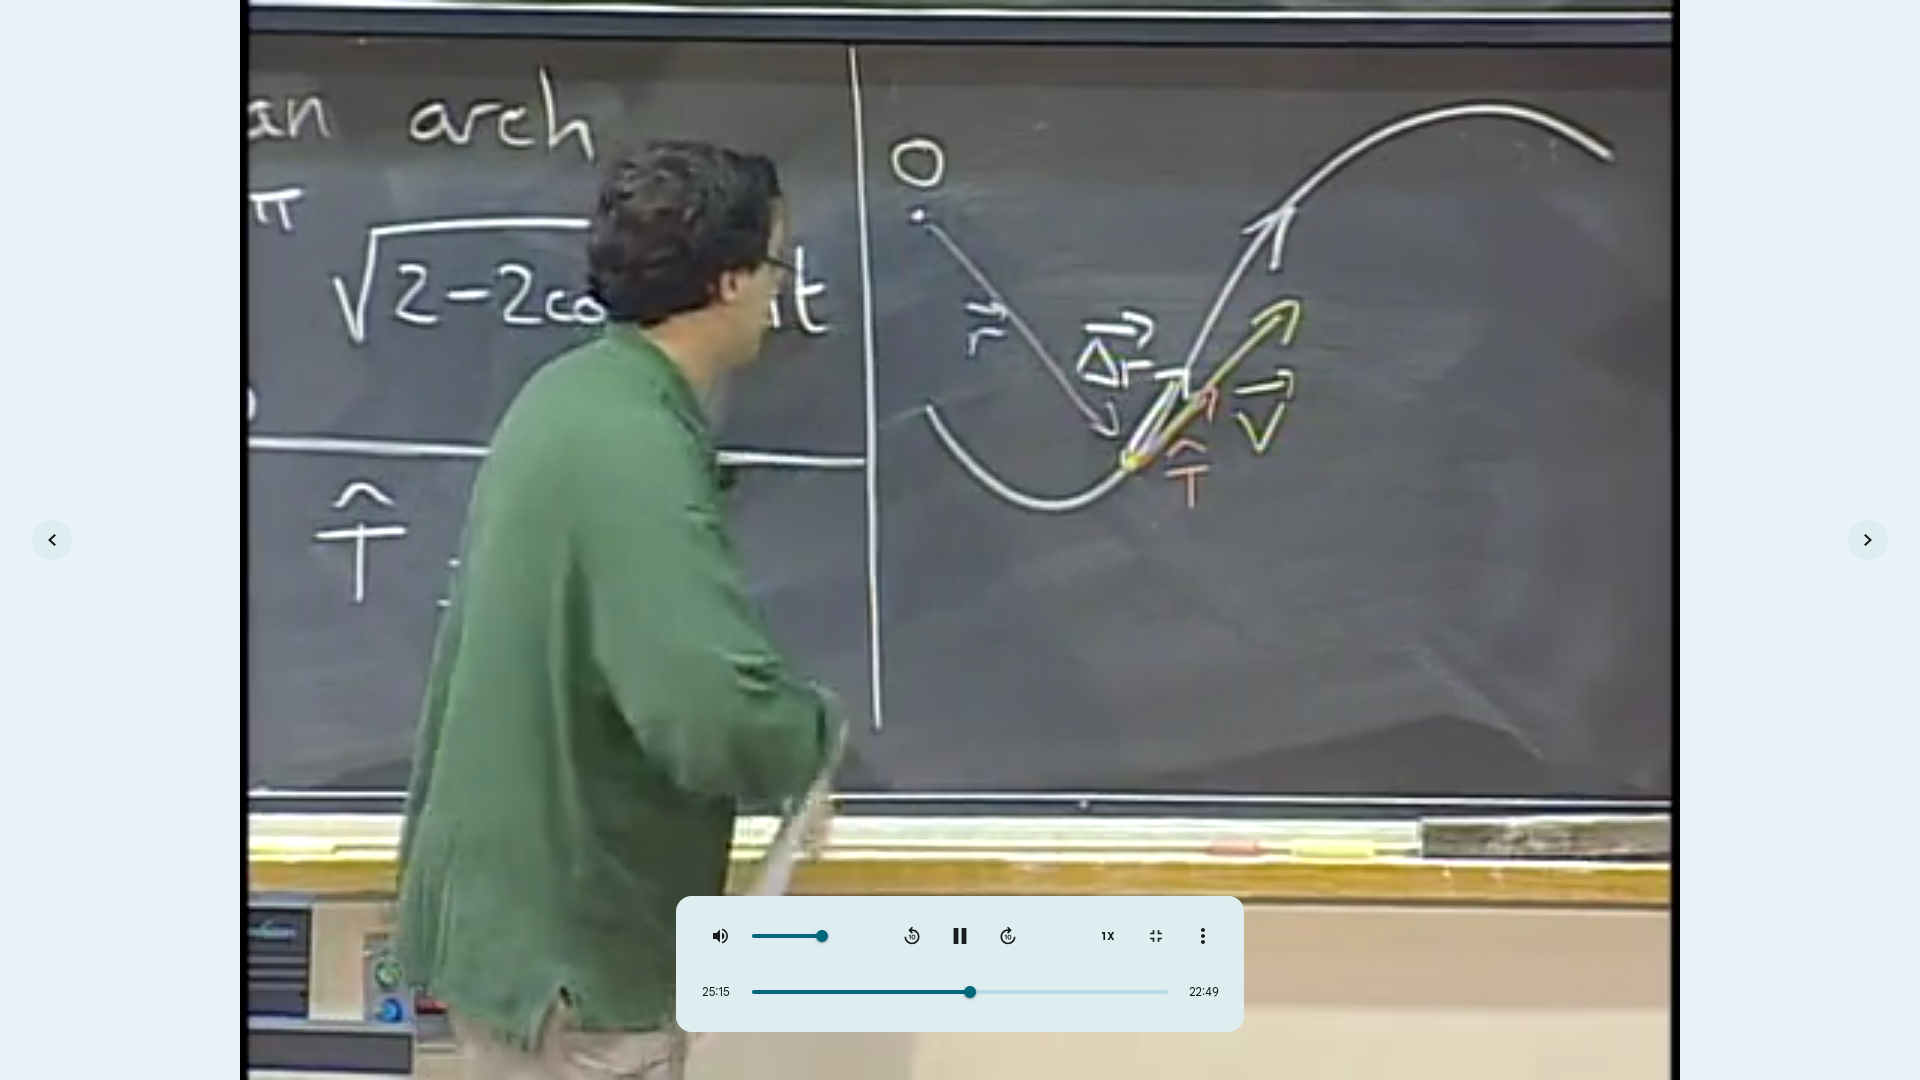 an arch
π
√2-2co it
T̂
O
r⃗
Δr⃗
v⃗
T̂
1X
25:15
22:49